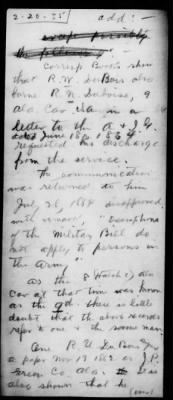 2-20-35 add: -
Corresp Books show
that R.W. DuBois also
borne R.N. Duboise, 9
Ala. Cav. Ua. in a
letter to the A & I.G.
requested his discharge
from the service.
The communication
was returned to him
July 21, 1864 disapproved
with remark, "Exemptions
of the Military Bill do
not apply to persons in
the Army"
As the 8 (Hatch's) Ala
Cav at that time was known
as the 9th there is little
doubt that the above records
refer to one & the same man.
One R.W. DuBois
a paper Nov 17 1862 as J.P.
Green Co. Ala. It was
also shown that he
(over)